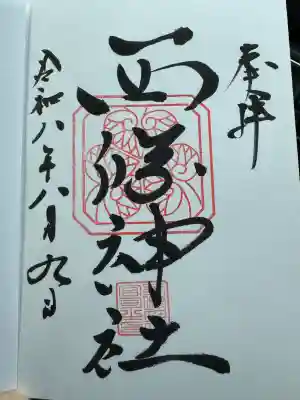 奉拝
西 神社
令和八年八月九日